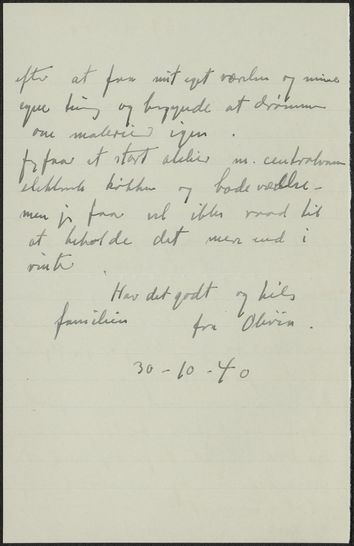 efter at faa mit eget værelse og mine
egne ting og begynde at drømme
om malerier igen.
Jeg faar et stort atelier m. centralvarme
elektrisk køkken og badeværelse -
men jeg faar vel ikke raad til
at beholde det mere end i
vinter.
Hav det godt og hils
familien fra Olivia.
30-10-40